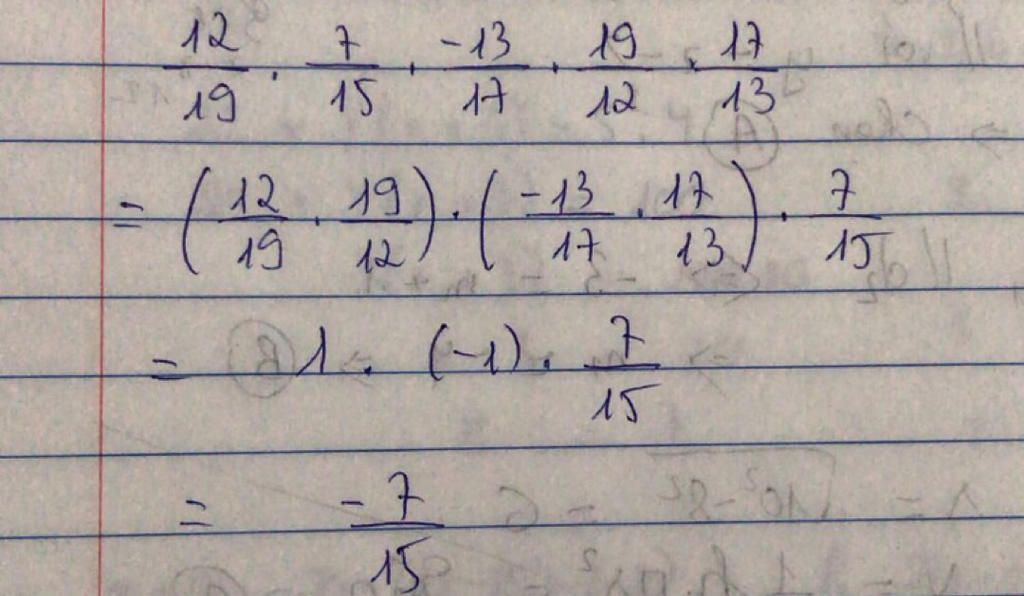 12/19 . 7/15 . -13/17 . 19/12 . 17/13
= (12/19 . 19/12) . (-13/17 . 17/13) . 7/15
= 1 . (-1) . 7/15
= -7/15